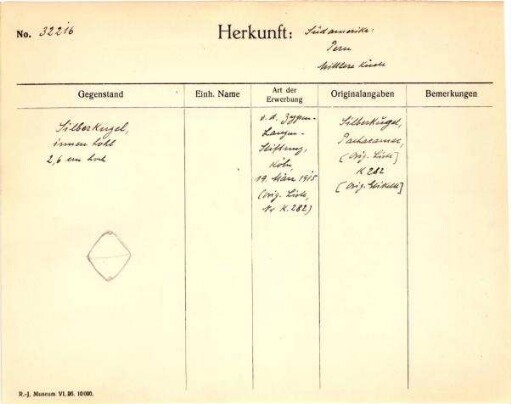 No. 32216
Herkunft: Südamerika.
Peru
Mittlere Küste
Gegenstand
Einh. Name
Art der Erwerbung
Originalangaben
Bemerkungen
Silberkugel,
innen hohl
2,6 cm hoch
v. d. Zypen-
Langen-
Stiftung,
Köln,
19. März 1915
(Orig. Liste,
No K. 282)
Silberkugel,
Pachacamac,
[Orig. Liste]
K 282
[Orig. Etikette]
R.-J. Museum VI. 26. 10000.